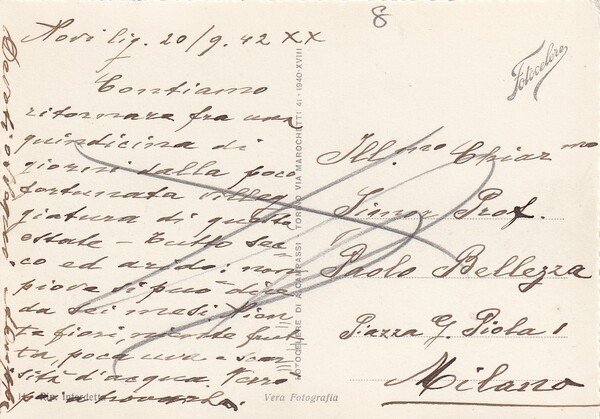 8
Novi Lig. 20/9.42 XX
Contiamo
ritornare fra una
quindicina di
giorni dalla poco
fortunata villeg-
giatura di questa
estate - Tutto sec-
co ed arido: non
piove si può dire
da sei mesi. Nien-
te fiori, niente frut-
ta, poca uva - scar-
sità d'acqua.
Rip. Interdetta
Vera Fotografia
FOTOCELERE DI A. CAMPASSI - TORINO VIA MAROCHETTI 41 - 1940-XVIII
Fotocelere
Ill.mo Chiar.mo
Signor Prof.
Paolo Bellezza
Piazza G. Piola 1
Milano